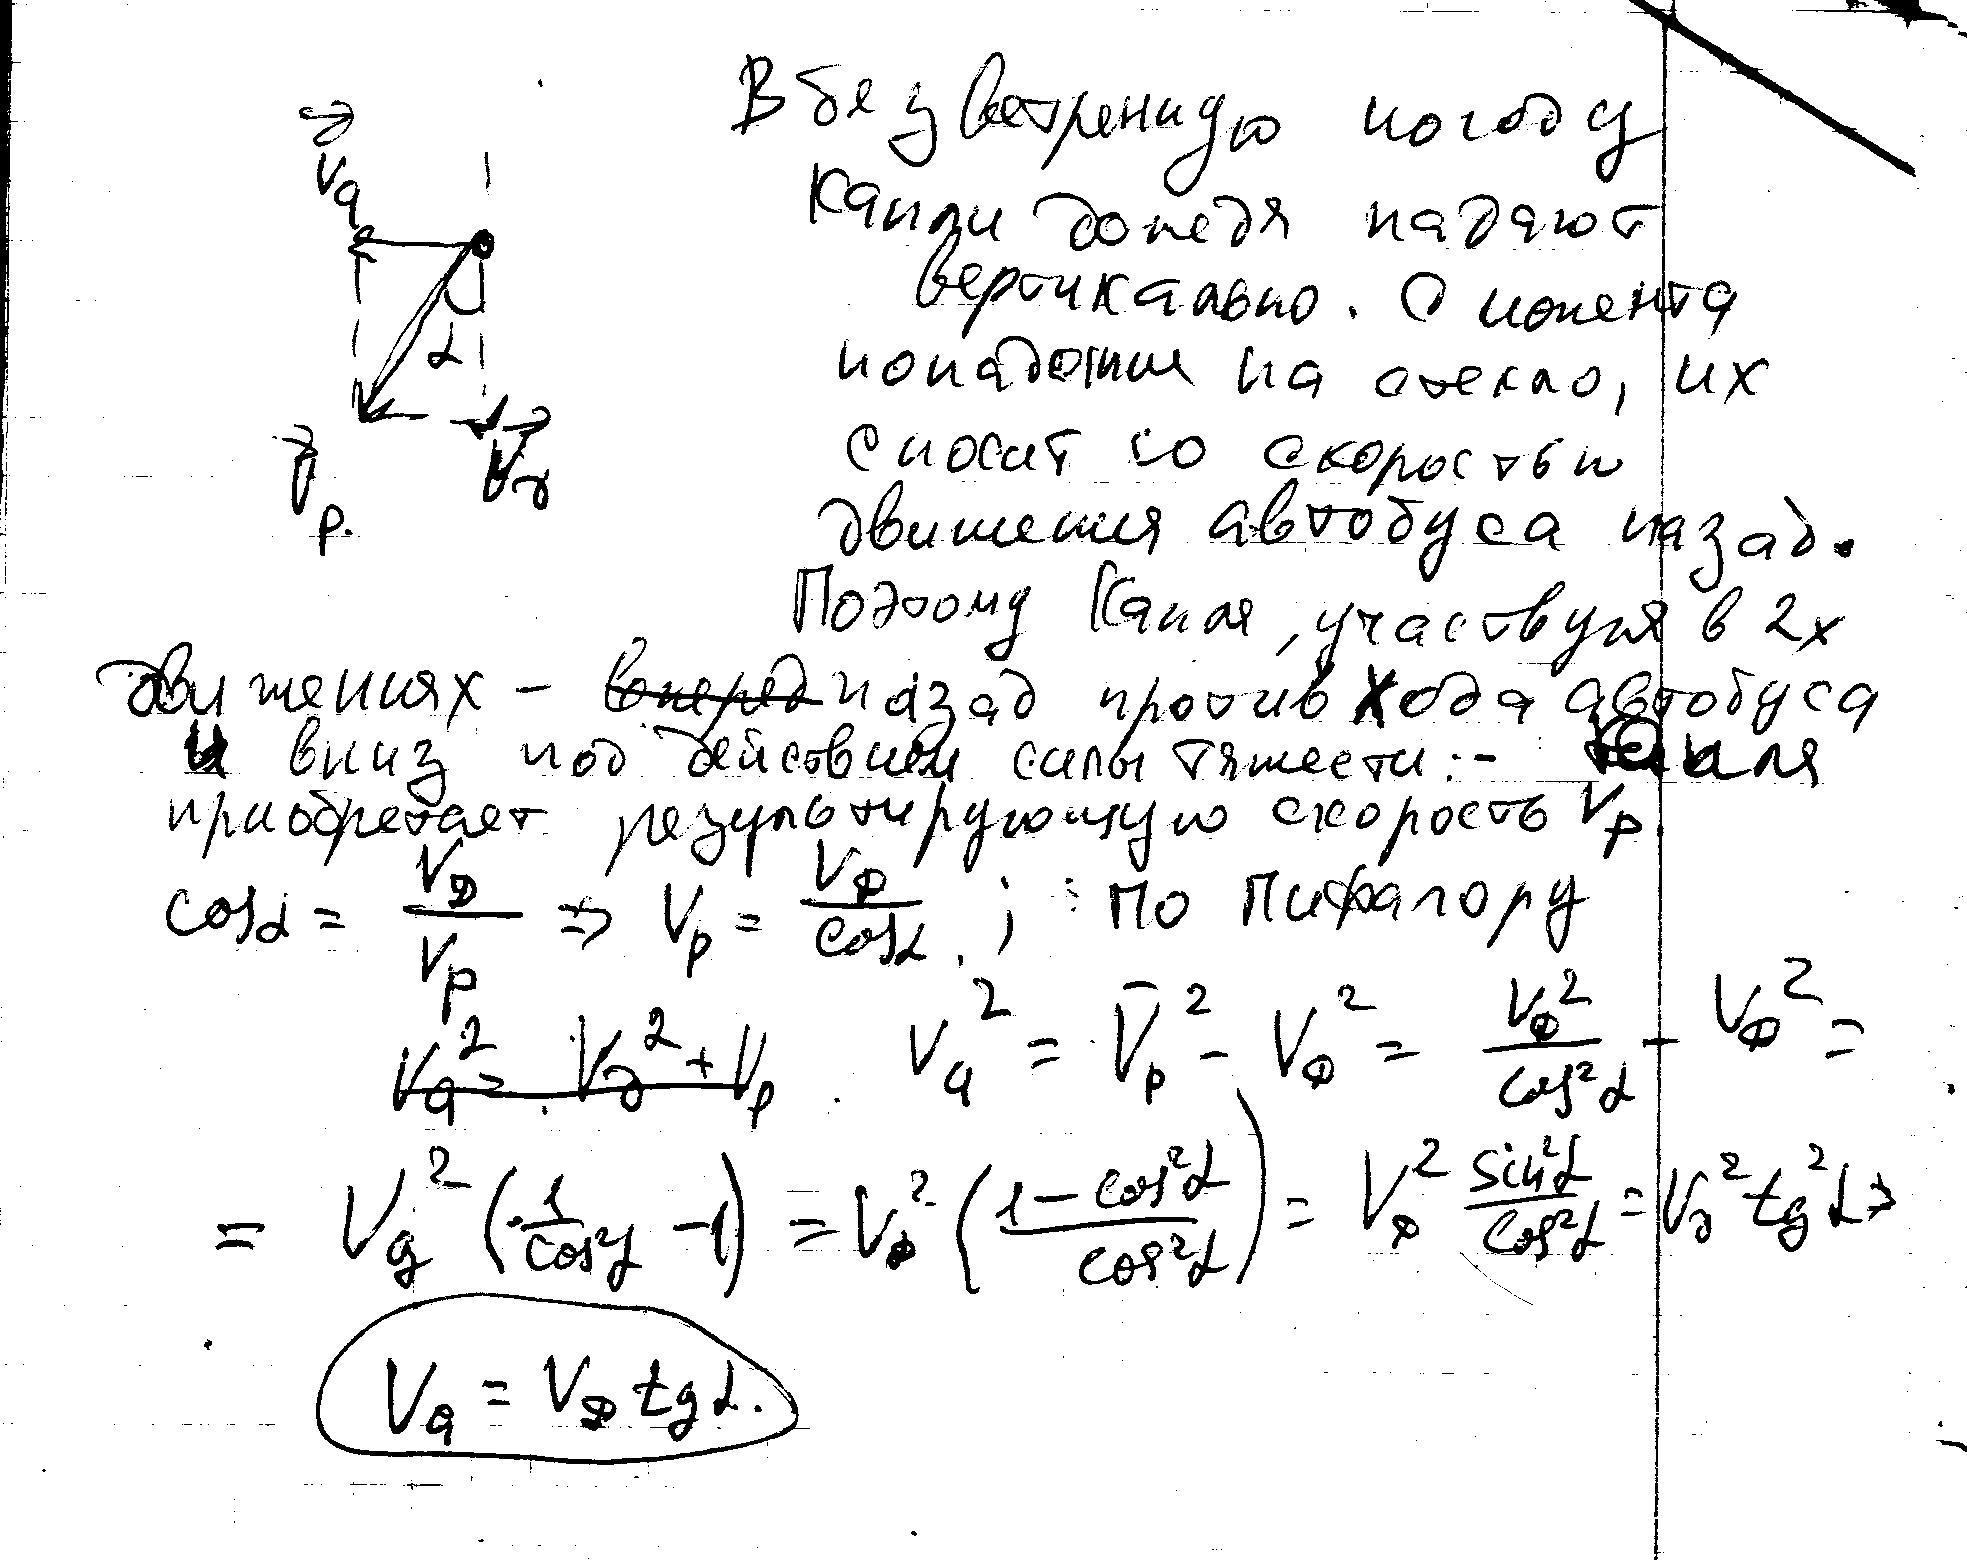 В безветренную погоду
Vа
капли дождя падают
вертикально. С момента
α
попадания на стекло, их
Vр.
Vд
сносит со скоростью
движения автобуса назад.
Поэтому капля, участвуя в 2х
движениях – вперед назад против хода автобуса
и вниз под действием силы тяжести :- капля
приобретает результирующую скорость Vр.
cosα = Vд/Vр ⇒ Vр = Vд/cosα. ; по Пифагору
Vа² = Vд² + Vр Vа² = Vр² - Vд² = Vд²/cos²α - Vд² =
= Vд² (1/cos²α - 1) = Vд² (1 - cos²α/cos²α) = Vд² sin²α/cos²α = Vд² tg²α ⇒
Vа = Vд tgα.